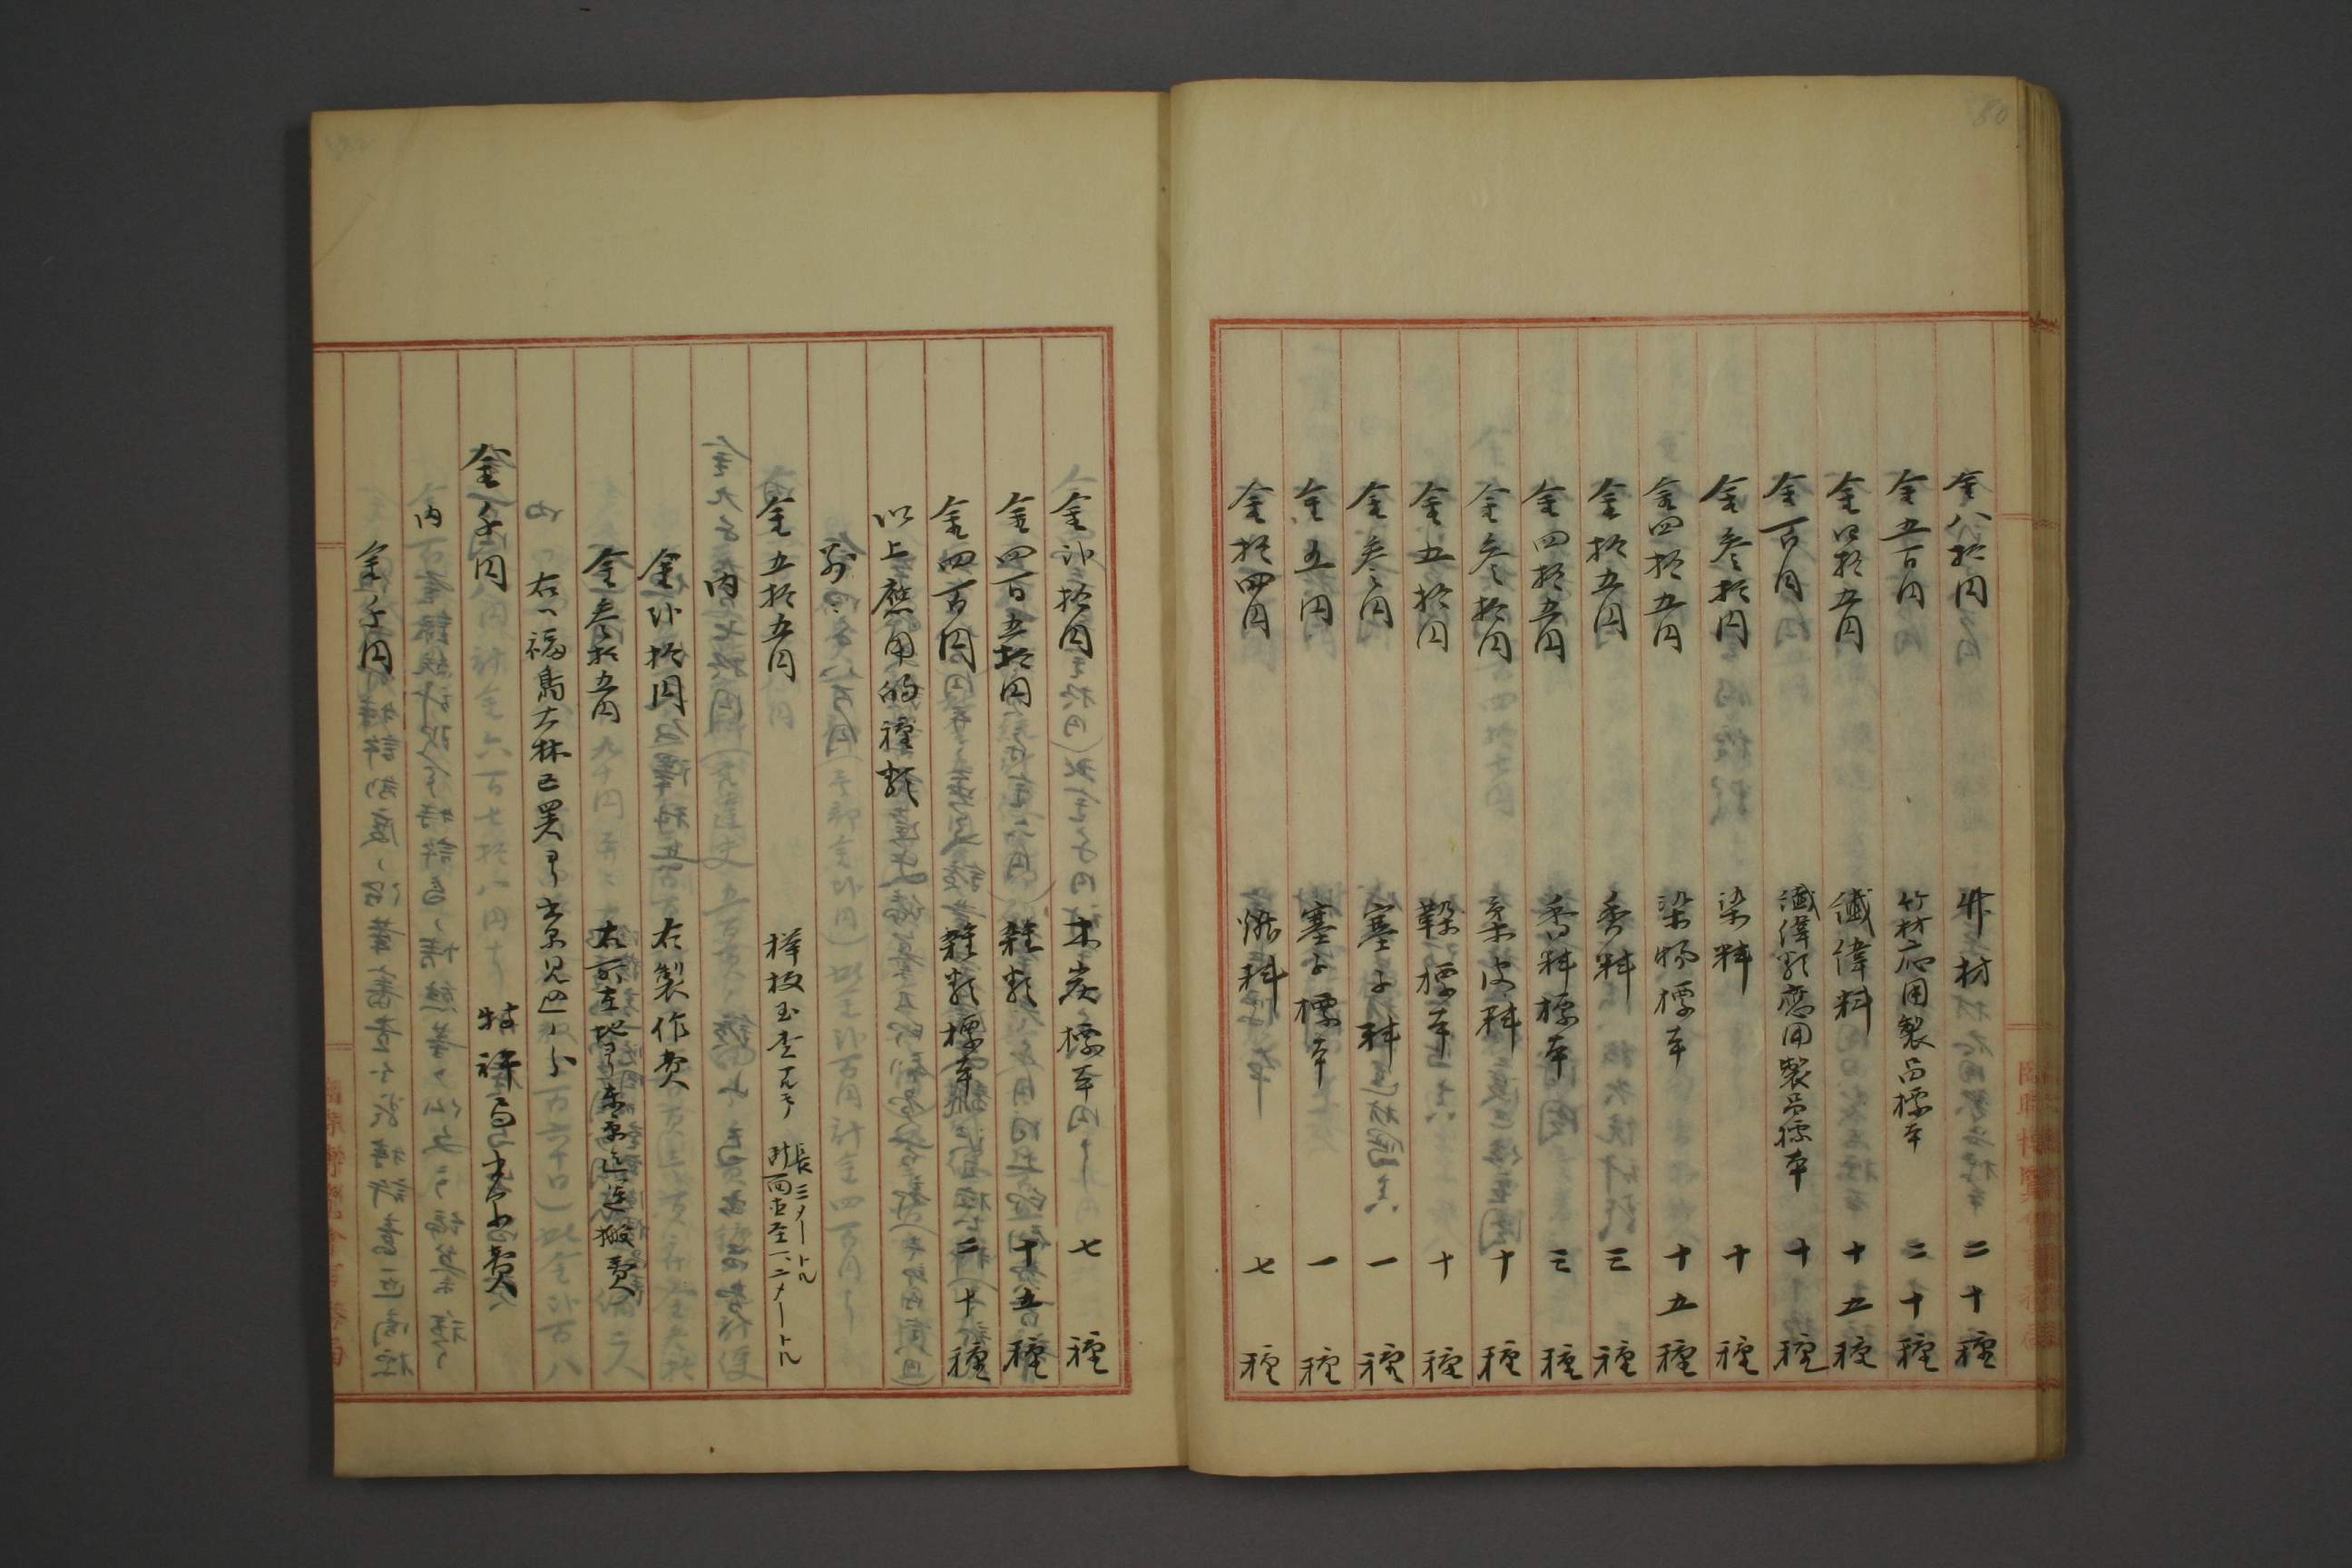 80
金八拾円 竹材 二十種
金五百円 竹材応用製品標本 二十種
金四拾五円 纎偉料 十五種
金百円 纎偉類應用製品標本 十種
金参拾円 染料 十種
金四拾五円 染物標本 十五種
金拾五円 香料 三種
金四拾五円 香料標本 三種
金参拾円 柔皮料 十種
金五拾円 鞣標本 十種
金参円 塞子料 一種
金五円 塞子標本 一種
金拾四円 燃料 七種
金弐拾円 木炭標本 七種
金四百五拾円 雑類 十五種
金四百円 雑類標本 二十種
以上應用的種類
別
金五拾五円 樺板玉杢一丁 長三メートル
断面直径一、二メートル
内
金弐拾円 右製作費
金参拾五円 右所在地ヨリ東京迄運搬費
右ハ福島大林区署ヨリ
金千円 特許局出品費
内
金千円